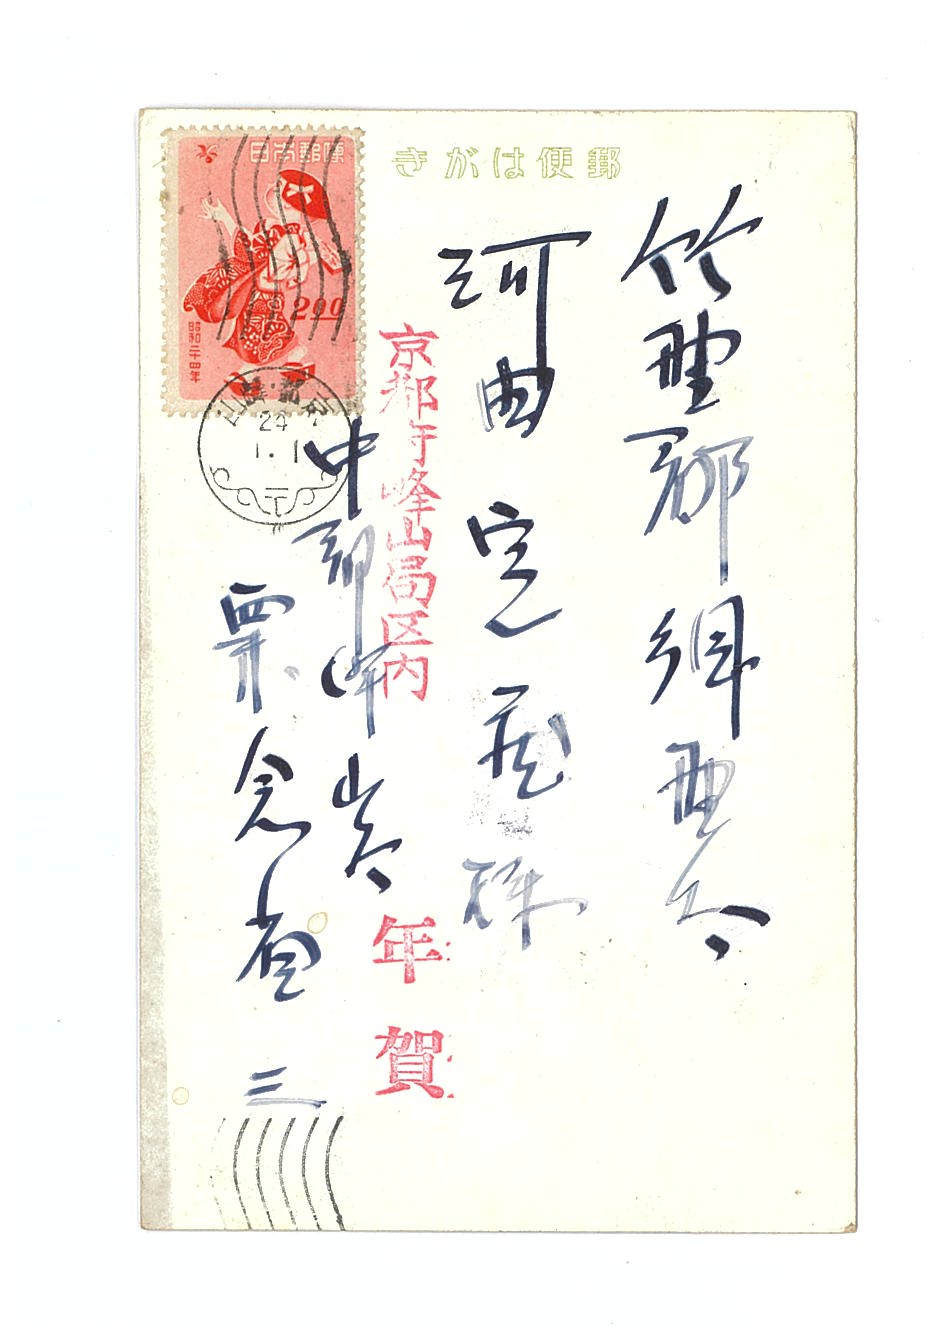 郵便はがき
日本郵便
2.00
昭和二十四年
24
1.1
竹野郡網野
河田定蔵様
京都府峰山局区内
年賀
中郡峰山
省三